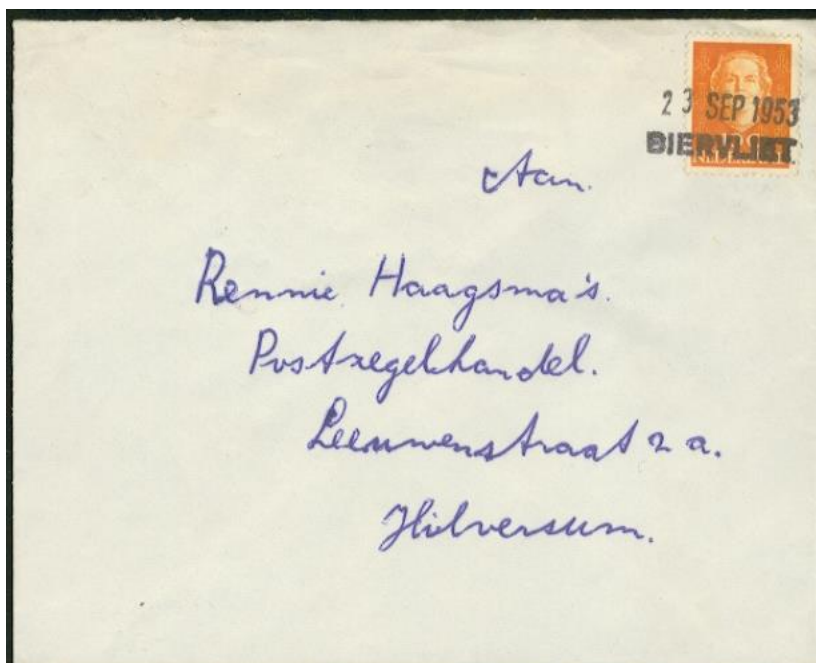 23 SEP 1953
BIERVLIET
Aan.
Rennie Haagsma's.
Postzegelhandel.
Leeuwenstraat 2a.
Hilversum.